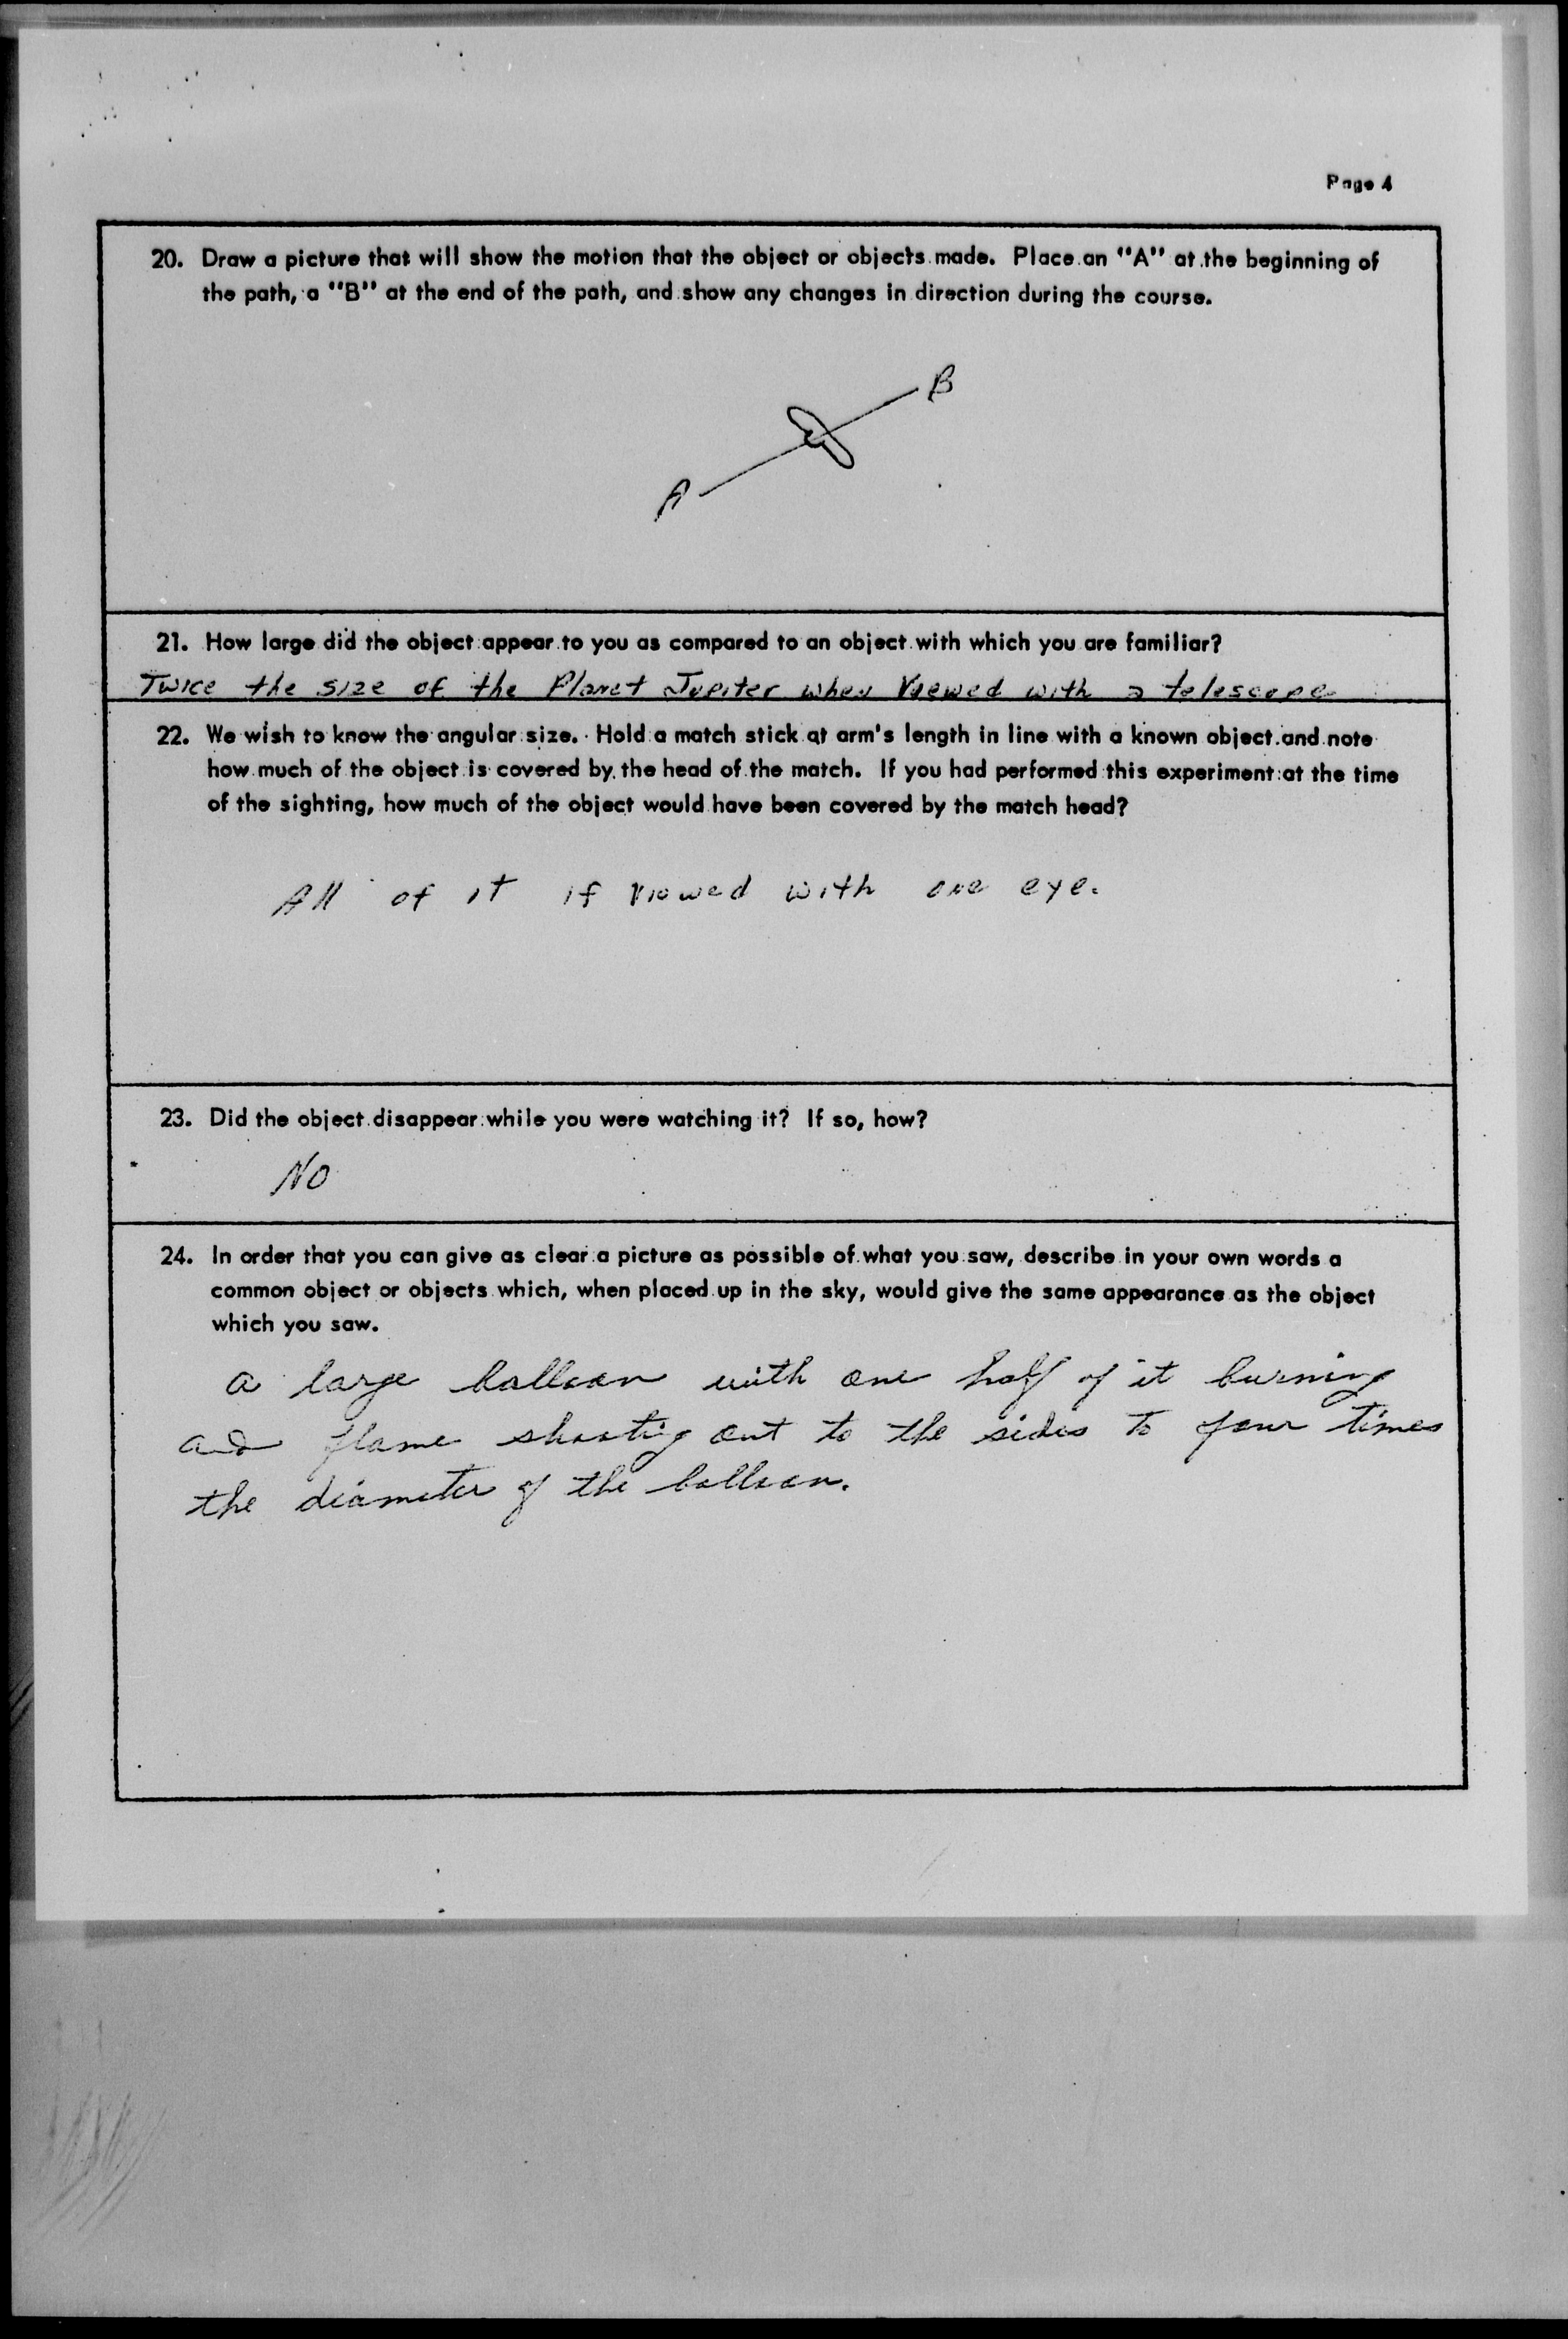 Page 4
20. Draw a picture that will show the motion that the object or objects made. Place an "A" at the beginning of
the path, a "B" at the end of the path, and show any changes in direction during the course.
B
A
21. How large did the object appear to you as compared to an object with which you are familiar?
Twice the size of the Planet Jupiter when Viewed with a telescope
22. We wish to know the angular size. Hold a match stick at arm's length in line with a known object and note
how much of the object is covered by the head of the match. If you had performed this experiment at the time
of the sighting, how much of the object would have been covered by the match head?
All of it if viewed with one eye.
23. Did the object disappear while you were watching it? If so, how?
NO
24. In order that you can give as clear a picture as possible of what you saw, describe in your own words a
common object or objects which, when placed up in the sky, would give the same appearance as the object
which you saw.
a large balloon with one half of it burning
and flame shooting out to the sides to four times
the diameter of the balloon.